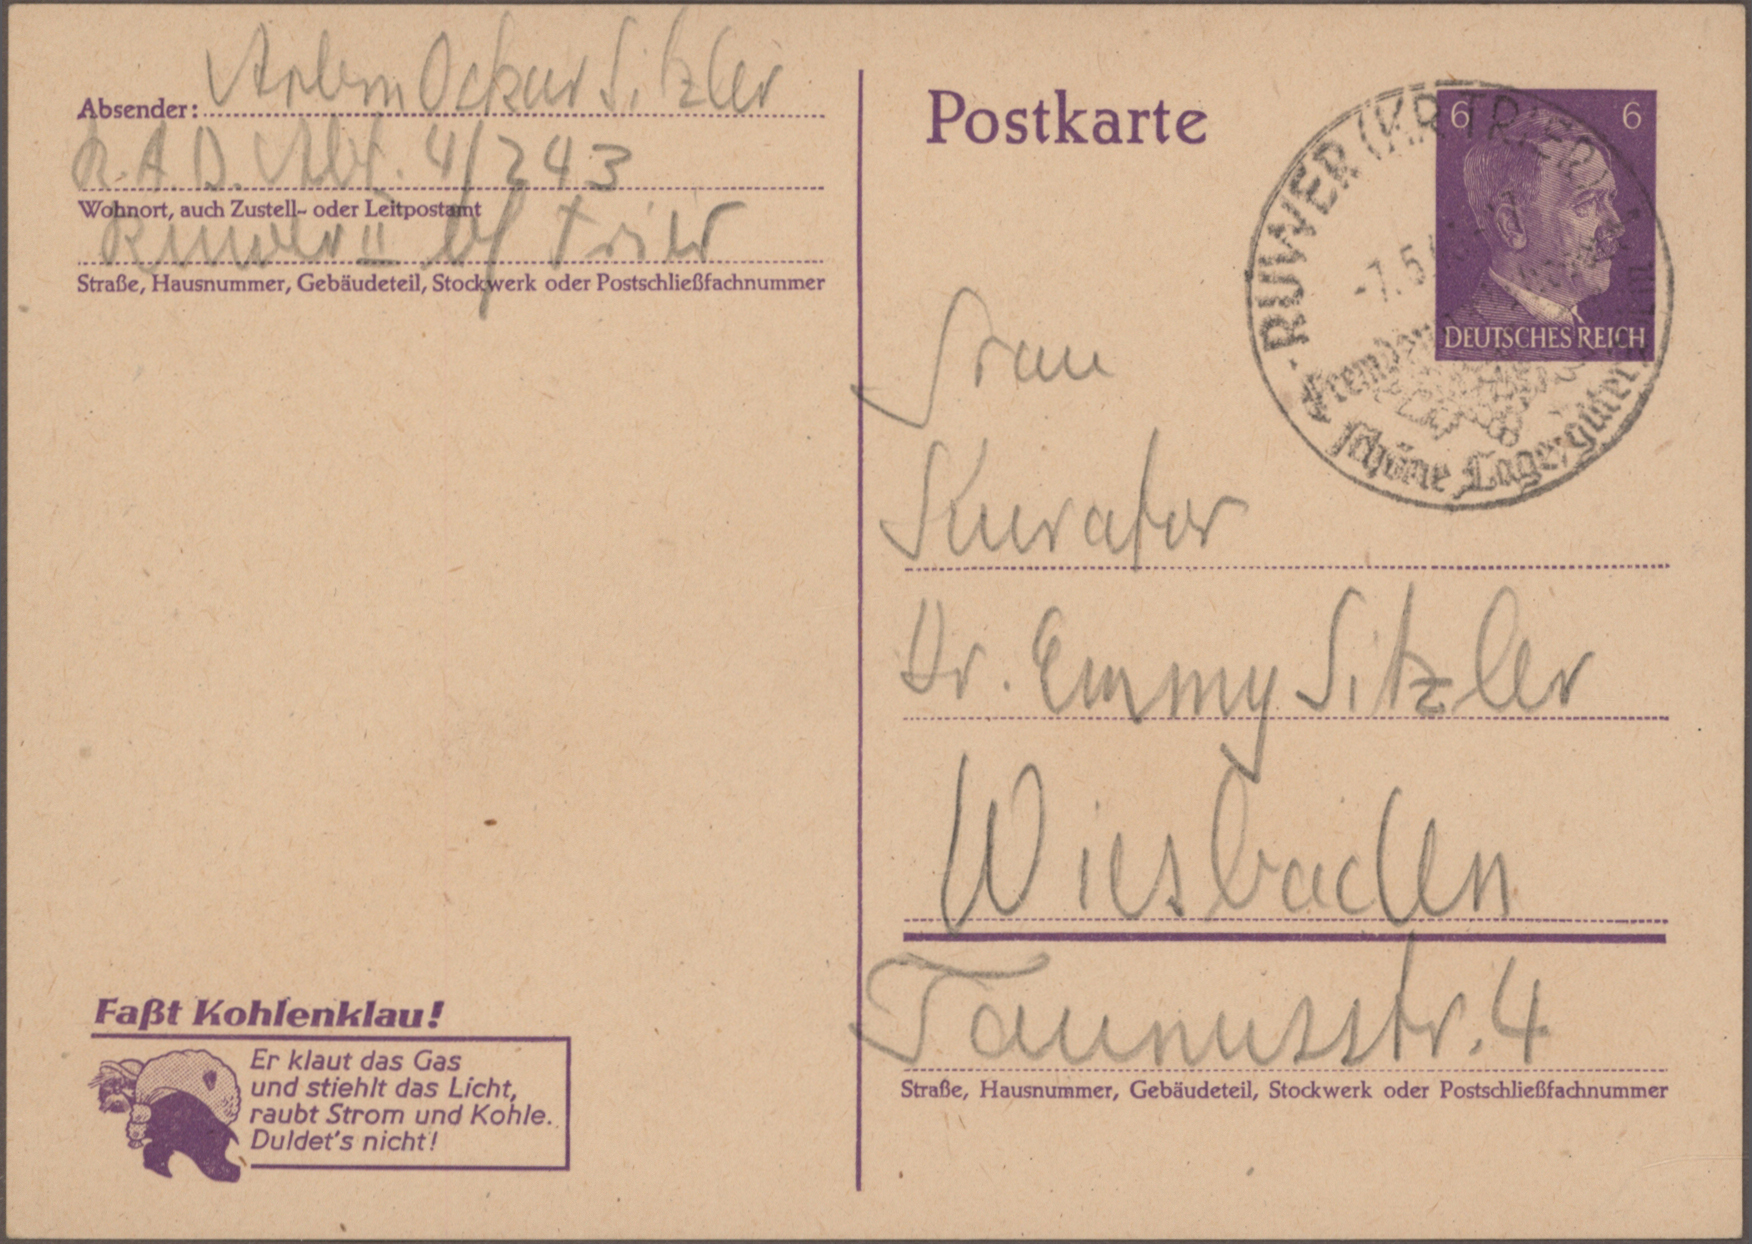 Absender: Arbm Oskar Sitzler
R.A.D. Abt. 4/243
Wohnort, auch Zustell- oder Leitpostamt
Ruwer II bf Trier
Straße, Hausnummer, Gebäudeteil, Stockwerk oder Postschließfachnummer
Postkarte
6 6
DEUTSCHES REICH
RUWER (KR TRIER)
-7.5
Fremden
schöne Lage, güter
Frau
Kurator
Dr. Emmy Sitzler
Wiesbaden
Taunusstr. 4
Straße, Hausnummer, Gebäudeteil, Stockwerk oder Postschließfachnummer
Faßt Kohlenklau!
Er klaut das Gas
und stiehlt das Licht,
raubt Strom und Kohle.
Duldet's nicht!